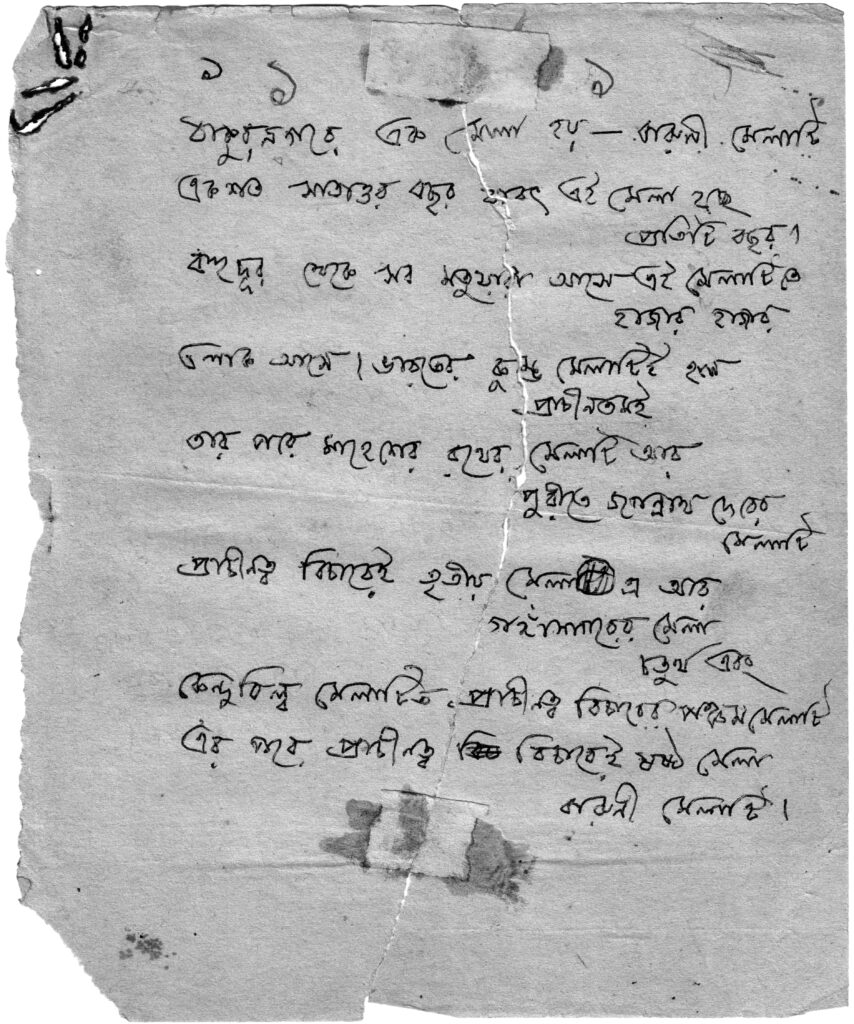 ১ ১ ১
ঠাকুরনগরে এক মেলা হয় — বারুনী মেলাটি
একশত সাতাত্তর বছর যাবৎ এই মেলা হচ্ছে
প্রতিটি বছর।
বহুদূর থেকে সব মতুয়ারা আসে এই মেলাটিতে
হাজার হাজার
লোক আসে। ভারতের কুম্ভ মেলাটিই হল
প্রাচীনতমই
তার পরে মাহেশের রথের মেলাটি আর
পুরীতে জগন্নাথ দেবের
মেলাটি
প্রাচীনত্ব বিচারেই তৃতীয় মেলা এ আর
গঙ্গাসাগরের মেলা
চতুর্থ এবং
কেন্দুবিল্ব মেলাটিও প্রাচীনত্ব বিচারের পঞ্চম মেলাটি
এঁর পরে প্রাচীনত্ব বিচারেই ষষ্ঠ মেলা
বারুনী মেলাটি।